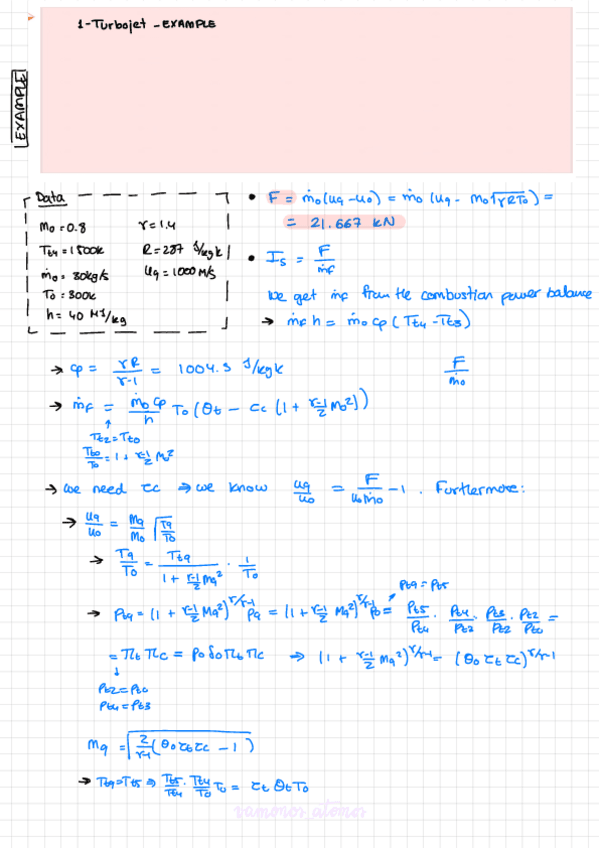 1-Turbojet - EXAMPLE
EXAMPLE
Data
M₀ = 0.8 γ = 1.4
Tt4 = 1500k R = 287 J/kg k
ṁ₀ = 30kg/s U9 = 1000 M/S
T₀ = 300k
h = 40 MJ/kg
• F = ṁ₀(u9 - u₀) = ṁ₀ (u9 - M₀√γRT₀) =
= 21.667 kN
• Is = F/ṁf
We get ṁf from the combustion power balance
→ ṁf h = ṁ₀ cp (Tt4 - Tt3)
→ cp = γR/γ-1 = 1004.5 J/kg k F/ṁ₀
→ ṁf = ṁ₀ cp/h T₀ (θt - τc (1 + γ-1/2 M₀²))
Tt2 = Tt0
Tt0/T₀ = 1 + γ-1/2 M₀²
→ we need τc ⇒ we know u9/u₀ = F/u₀ṁ₀ - 1 . Furthermore:
→ u9/u₀ = M9/M₀ √T9/T₀
→ T9/T₀ = Tt9/1 + γ-1/2 M9² · 1/T₀
Pt9 = Pt5
→ Pt9 = (1 + γ-1/2 M9²)^γ/γ-1 P9 = (1 + γ-1/2 M9²)^γ/γ-1 P₀ = Pt5/Pt4 · Pt4/Pt2 · Pt3/Pt2 · Pt2/Pt0 =
= πt πc = P₀ δ₀ πt πc → (1 + γ-1/2 M9²)^γ/γ-1 = (θ₀ τt τc)^γ/γ-1
Pt2 = Pt0
Pt4 = Pt3
M9 = √2/γ-1 (θ₀ τt τc - 1)
→ Tt9 = Tt5 ⇒ Tt5/Tt4 · Tt4/T₀ T₀ = τt θt T₀
vamonos_atomos